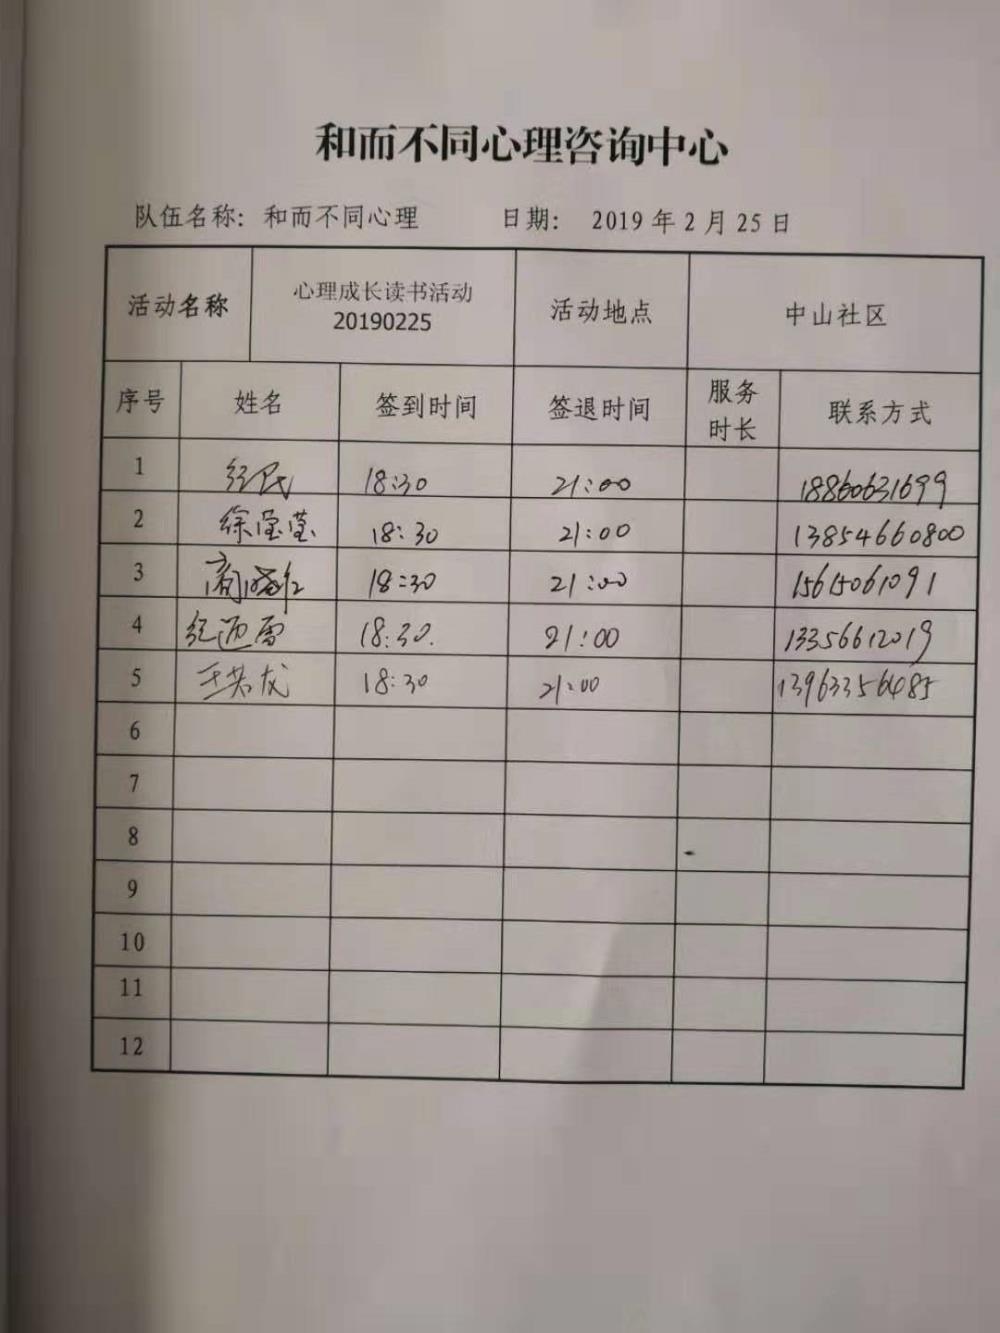 和而不同心理咨询中心
队伍名称: 和而不同心理 日期: 2019年2月25日
活动名称 心理成长读书活动 20190225 活动地点 中山社区
序号 姓名 签到时间 签退时间 服务时长 联系方式
1 18:30 21:00 18860631699
2 徐莹莹 18:30 21:00 13854660800
3 18:30 21:00 1561506 1091
4 18:30. 21:00 13356612019
5 18:30 21:00 13963356485
6
7
8
9
10
11
12